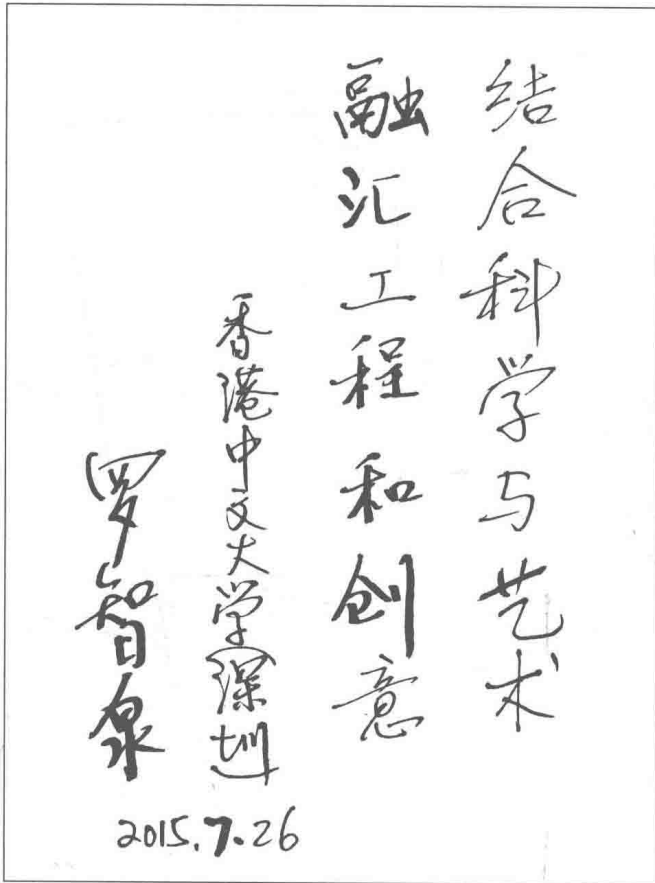 结合科学与艺术
融汇工程和创意
香港中文大学(深圳)
罗智泉
2015.7.26